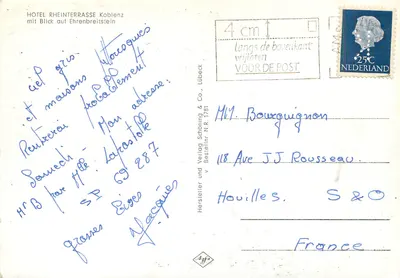 HOTEL RHEINTERRASSE Koblenz
mit Blick auf Ehrenbreitstein
Ciel gris.
et maisons Mousquées
Rentrerai probablement
Samedi. Mon adresse:
Mr B par Mlle Lapostolle
S.P. 69 287
Grosses Bises
Jacques
Hersteller und Verlag Schöning & Co., Lübeck
Bestellnr. N.R. 5781
4 cm
langs de bovenkant
vrijlaten
VOOR DE POST
25 C
NEDERLAND
M.M. Bourguignon
118 Ave JJ. Rousseau.
Houilles. S & O
France
Agfa